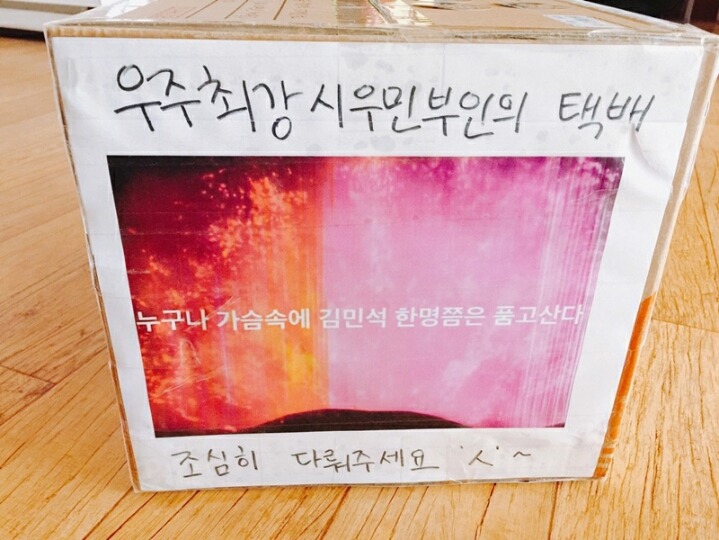 우주최강 시우민부인의 택배
누구나 가슴속에 김민석 한명쯤은 품고산다
조심히 다뤄주세요 'ㅅ' ~